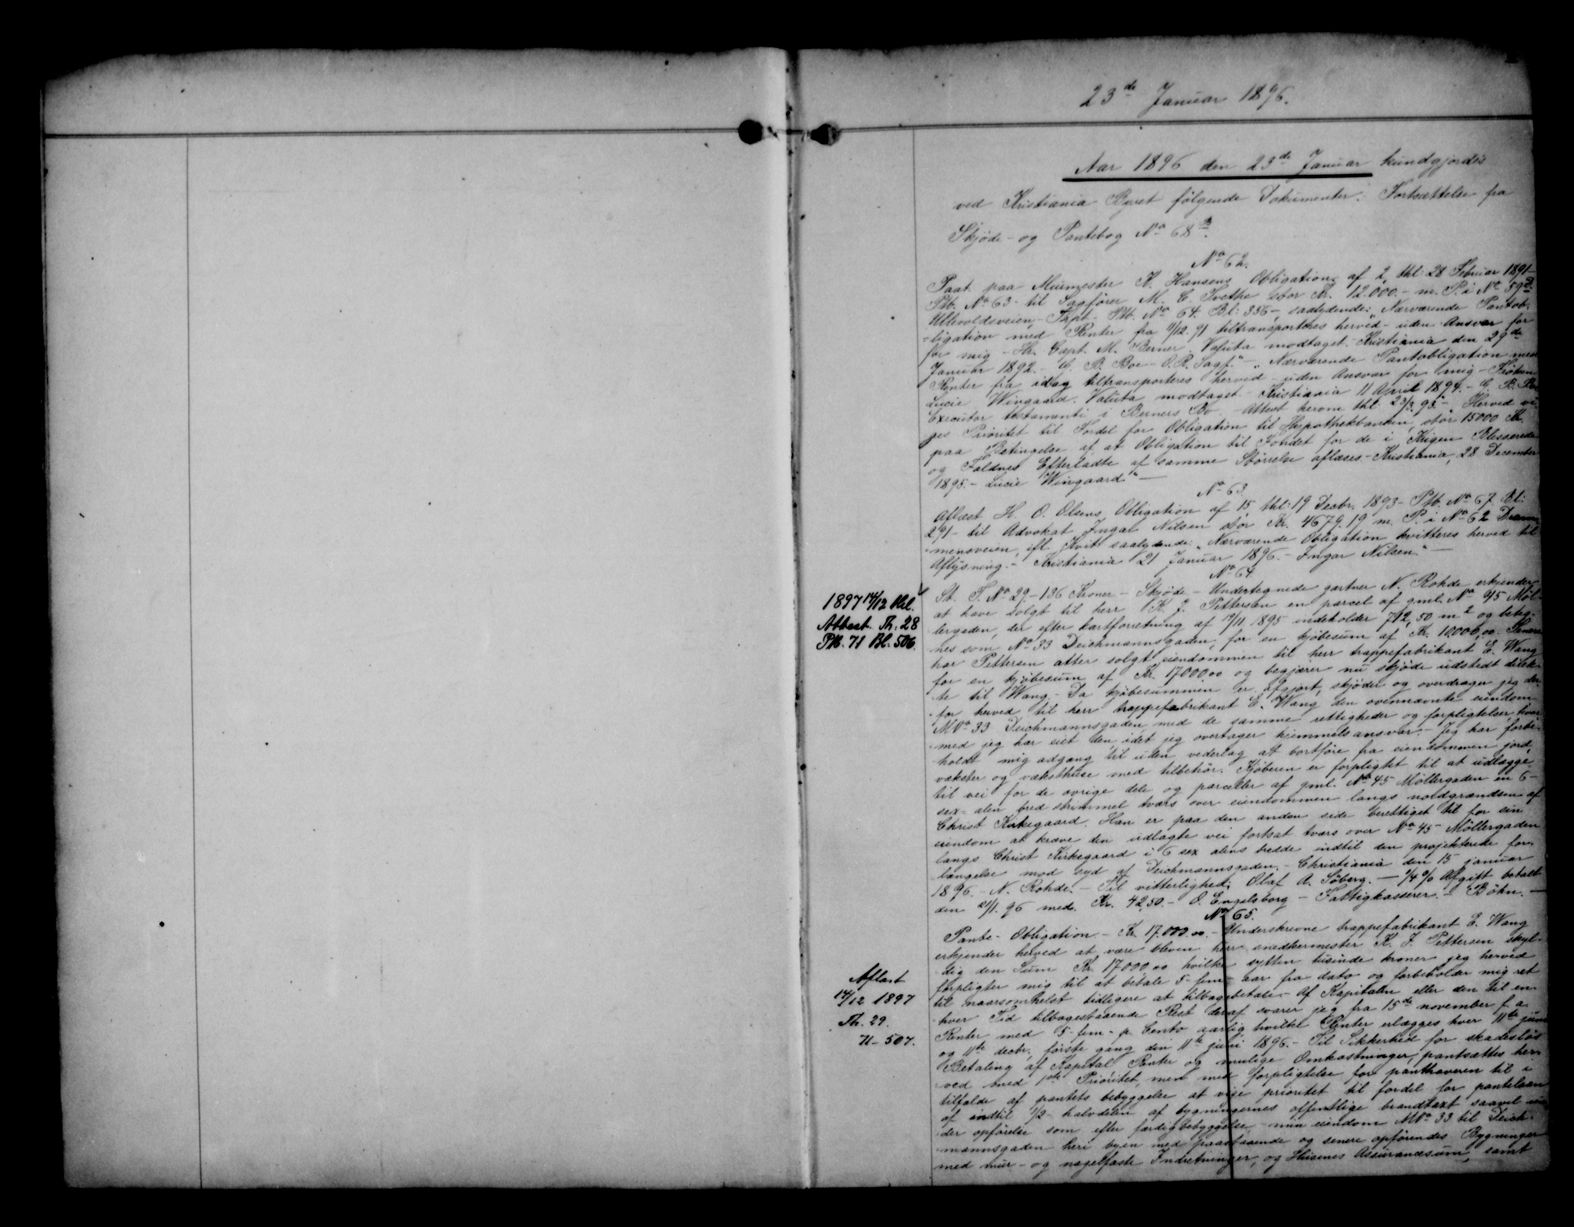 23de Januar 1896.
Aar 1896 den 23de Januar kundgjordes
ved Kristiania Byret følgende Dokumenter: Fortsættelse fra
Skjøde- og Pantebog No 68
No 62.
Paat. paa Murmester K. Hansens Obligation af 2, thl. 28 Februar 1891-
Ptb. No 63- til Sagfører M. C. Svethe stor Kr. 12.000.- m. P. i No 39
Ullevoldsveien,- Trpt. Ptb. No 64. Bl: 335-, saalydende: "Nærværende Pantob-
ligation med Renter fra 11/12 91 tiltransporteres herved uden Ansvar for
for mig - Hr. Capt. M. Berner. Valuta modtaget. Kristiania den 29de
Januar 1892.- C. P. Boe- O.R.Sagf." "Nærværende Pantobligation med
Renter fra idag tiltransporteres herved uden Ansvar for mig- Frøken
Lucie Wingaard. Valuta modtaget- Kristiania 11 April 1894.- C. P. Boe
Executor testamenti i Berners Bo. Attest herom thl. 93"- "Herved vi-
ges Prioritet til Fordel for Obligation til Hypothekbanken, stor 15000 Kr.
paa Betingelse af at Obligation til Fondet for de i Krigen Blesserede
og Faldnes Efterladte af samme Størrelse aflæses- Kristiania, 28 December
1895.- Lucie Wingaard"-
No 63
Aflæst H. O. Olsens Obligation af 15, thl: 19 Decbr. 1893- Ptb. No 67. Bl:
291- til Advokat Ingar Nilsen stor Kr. 4679.19 m. P. i No 62 Dram-
mensveien, ifl. Kvit. saalydende: "Nærværende Obligation kvitteres herved til
Aflysning.- Kristiania 21 Januar 1896.- Ingar Nilsen."-
No 64.
1897 14/12 thl.
Attest. Th. 28
Ptb. 71 Bl. 506.
St. P. No 29- 136 Kroner- Skjøde- Undertegnede gartner N. Rohde erkjender
at have solgt til herr K. J. Pettersen en parcel af gml. No 45 Møl-
lergaden, der efter kartforretning af 12/11 1895 indeholder 712,50 m2 og beteg-
nes som No 33 Deichmannsgaden, for en kjøbesum af Kr. 10000,00. Senere
har Pettersen atter solgt eiendommen til herr trappefabrikant E. Wang
for en kjøbesum af Kr. 17000.00 og begjærer nu skjøde udstedt direk-
te til Wang- Da kjøbesummen er afgjort, skjøder og overdrager jeg der-
for herved til herr trappefabrikant E. Wang den ovennævnte eiendom
M No 33 Deichmannsgaden, med de samme rettigheder og forpligtelser, hvor-
med jeg har eiet den, idet jeg overtager hjemmelsansvar.- Jeg har forbe-
holdt mig adgang til uden vederlag at bortføre fra eiendommen jord,
vækster og væksthuse med tilbehør. Kjøberen er forpligtet til at udlægge
til vei for de øvrige dele og parceller af gml. No 45 Møllergaden en 6-
sex- alen bred strimmel tvers over eiendommen langs nordgrændsen af
Christ Kirkegaard. Han er paa den anden side berettiget til for sin
eiendom at kræve den udlagte vei fortsat tvers over No 45- Møllergaden
langs Christ Kirkegaard i 6 sex alens bredde indtil den projekterede for-
længelse mod syd af Deichmannsgaden.- Christiania den 15 januar
1896.- N. Rohde.- Til vitterlighed: Olaf A. Søberg.- 1/4 % Afgift betalt
den 21/1. 96 med Kr. 42,50.- O. Engelsborg- Fattigkasserer.- Bøhn.-
No 65.
Aflæst
14/12 1897
Th. 29.
71- 507.
Pante- Obligation- Kr. 17.000.00.- Underskrevne trappefabrikant E. Wang
erkjender herved at være bleven herr snedkermester K. J. Pettersen skyl-
dig den Sum Kr. 17000.00 hvilke sytten tusinde kroner jeg herved
forpligter mig til at betale 5- fem- aar fra dato og forbeholder mig ret
til naarsomhelst tidligere at tilbagebetale- Af Kapitalen eller den til en-
hver Tid tilbagestaaende Rest deraf svarer jeg fra 15de november f. a.
Renter med 5- fem- p. Cento aarlig hvilke Renter erlægges hver 11te juni
og 11te decbr. første gang den 11te juni 1896.- Til Sikkerhed for skadesløs
Betaling af Kapital Renter og mulige Omkostninger, pantsættes her-
ved med 1ste Prioritet, men med forpligtelse for panthaveren til i
tilfælde af pantets bebyggelse at vige prioritet til fordel for pantelaan
af indtil 1/2- halvdelen af bygningernes offentlige brandtaxt saavel un-
der opførelse som efter færdigbebyggelse,- min eiendom M No 33 til Deich-
mannsgaden heri byen med paastaaende og senere opførendes Bygninger
med mur- og nagelfaste Indretninger, og Husenes Assurancesum, samt